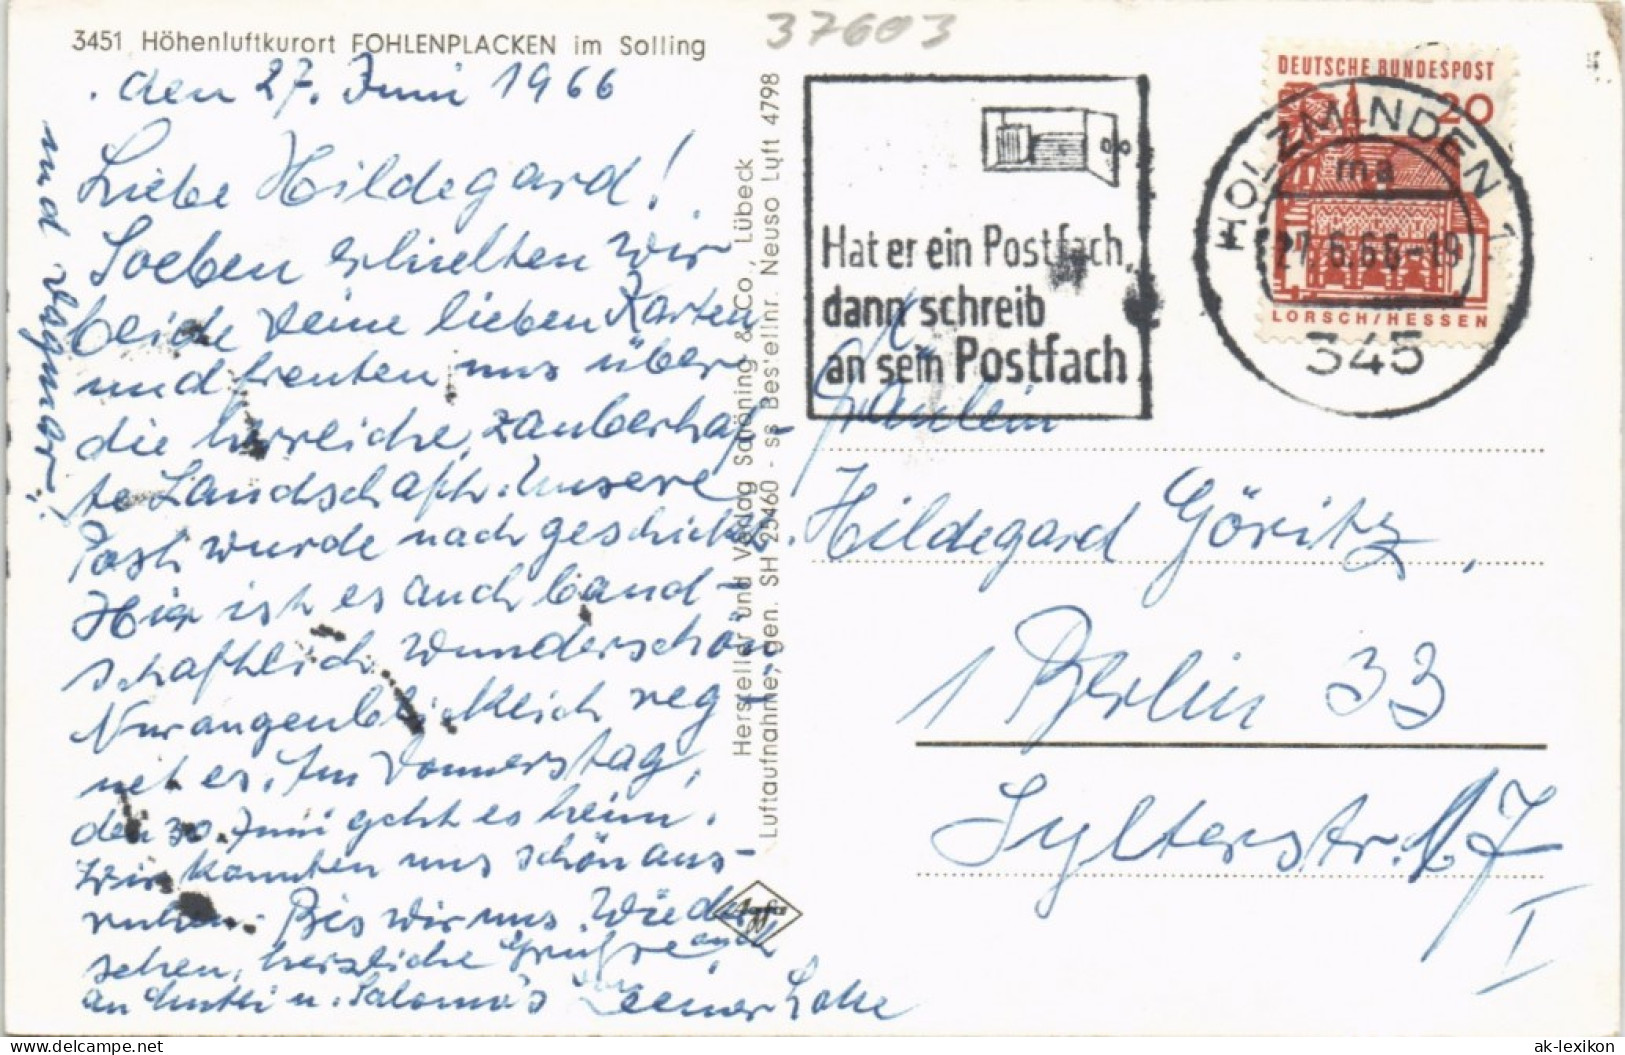 37603
3451 Höhenluftkurort FOHLENPLACKEN im Solling
den 27. Juni 1966
Liebe Hildegard!
Soeben erhielten wir
beide Deine lieben Karten
und freuten uns über
die herrliche, zauberhaf-
te Landschaft. Unsere
Post wurde nachgeschickt.
Hier ist es auch land-
schaftlich wunderschön
Nur augenblicklich reg-
net es. Am Donnerstag,
den 30. Juni geht es heim.
Wir konnten uns schön aus-
ruhen. Bis wir uns wieder
sehen, herzliche Grüße, auch
an Mutti u. Saloma's
Lotte
und Dagmar!
Hersteller und Verlag Schöning & Co., Lübeck
Luftaufnahme, gen. SH 25460 - ss Bestellnr. Neuso Luft 4798
Hat er ein Postfach,
dann schreib
an sein Postfach
DEUTSCHE BUNDESPOST
20
LORSCH/HESSEN
HOLZMINDEN 1
ma
27.6.66-19
345
Fräulein
Hildegard Göritz,
1 Berlin 33
Sylterstr. 17
I
ak-lexikon